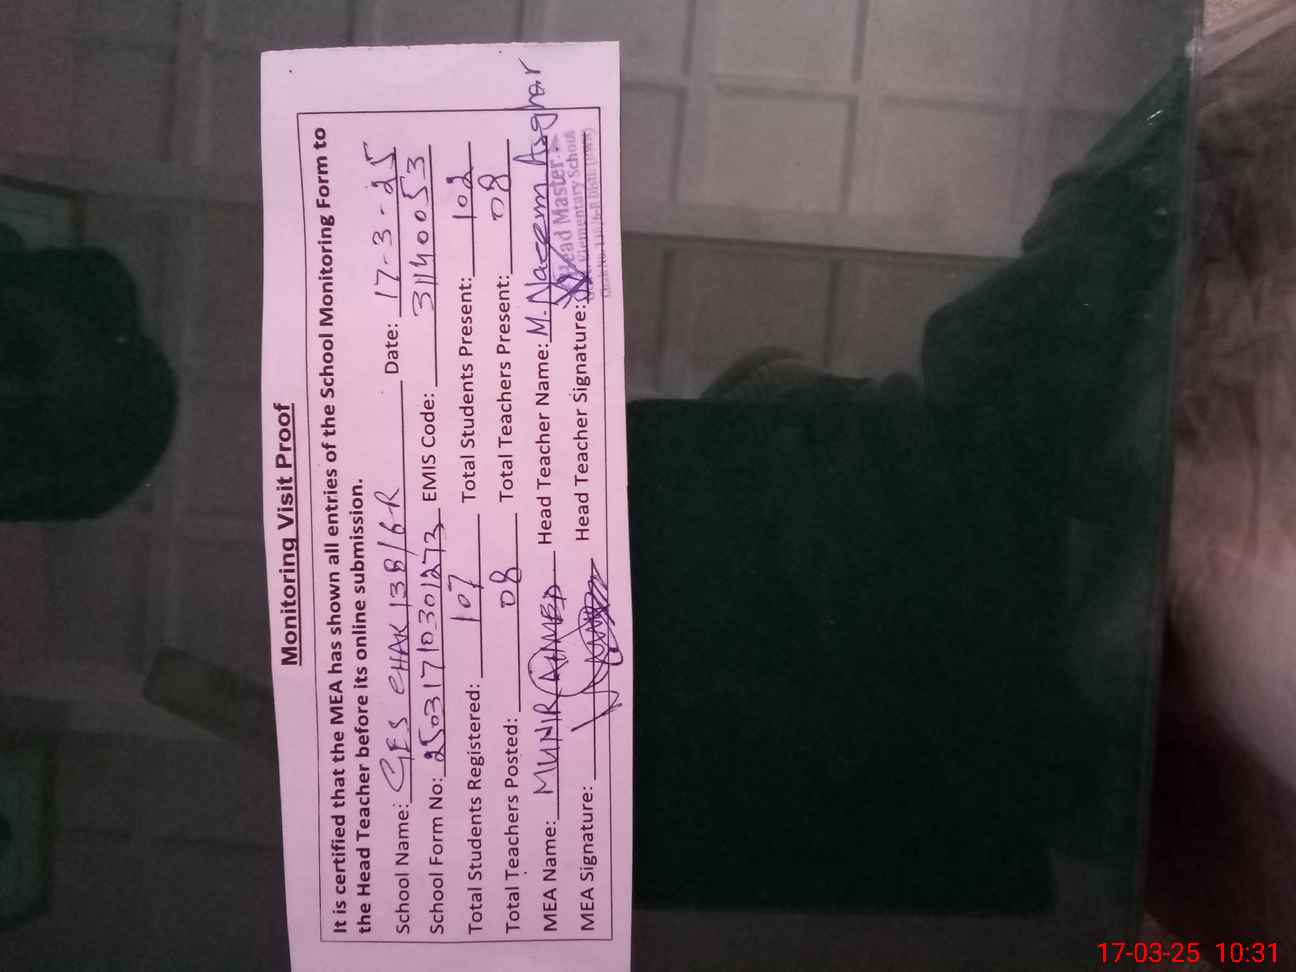 Monitoring Visit Proof
It is certified that the MEA has shown all entries of the School Monitoring Form to
the Head Teacher before its online submission.
School Name: GES CHAK 138/6-R Date: 17-3-25
School Form No: 25031710301273 EMIS Code: 31140053
Total Students Registered: 107 Total Students Present: 102
Total Teachers Posted: 08 Total Teachers Present: 08
MEA Name: MUNIR AHMED Head Teacher Name: M. Naeem Asghar
MEA Signature: Head Teacher Signature:
Head Master
Elementary School
17-03-25 10:31